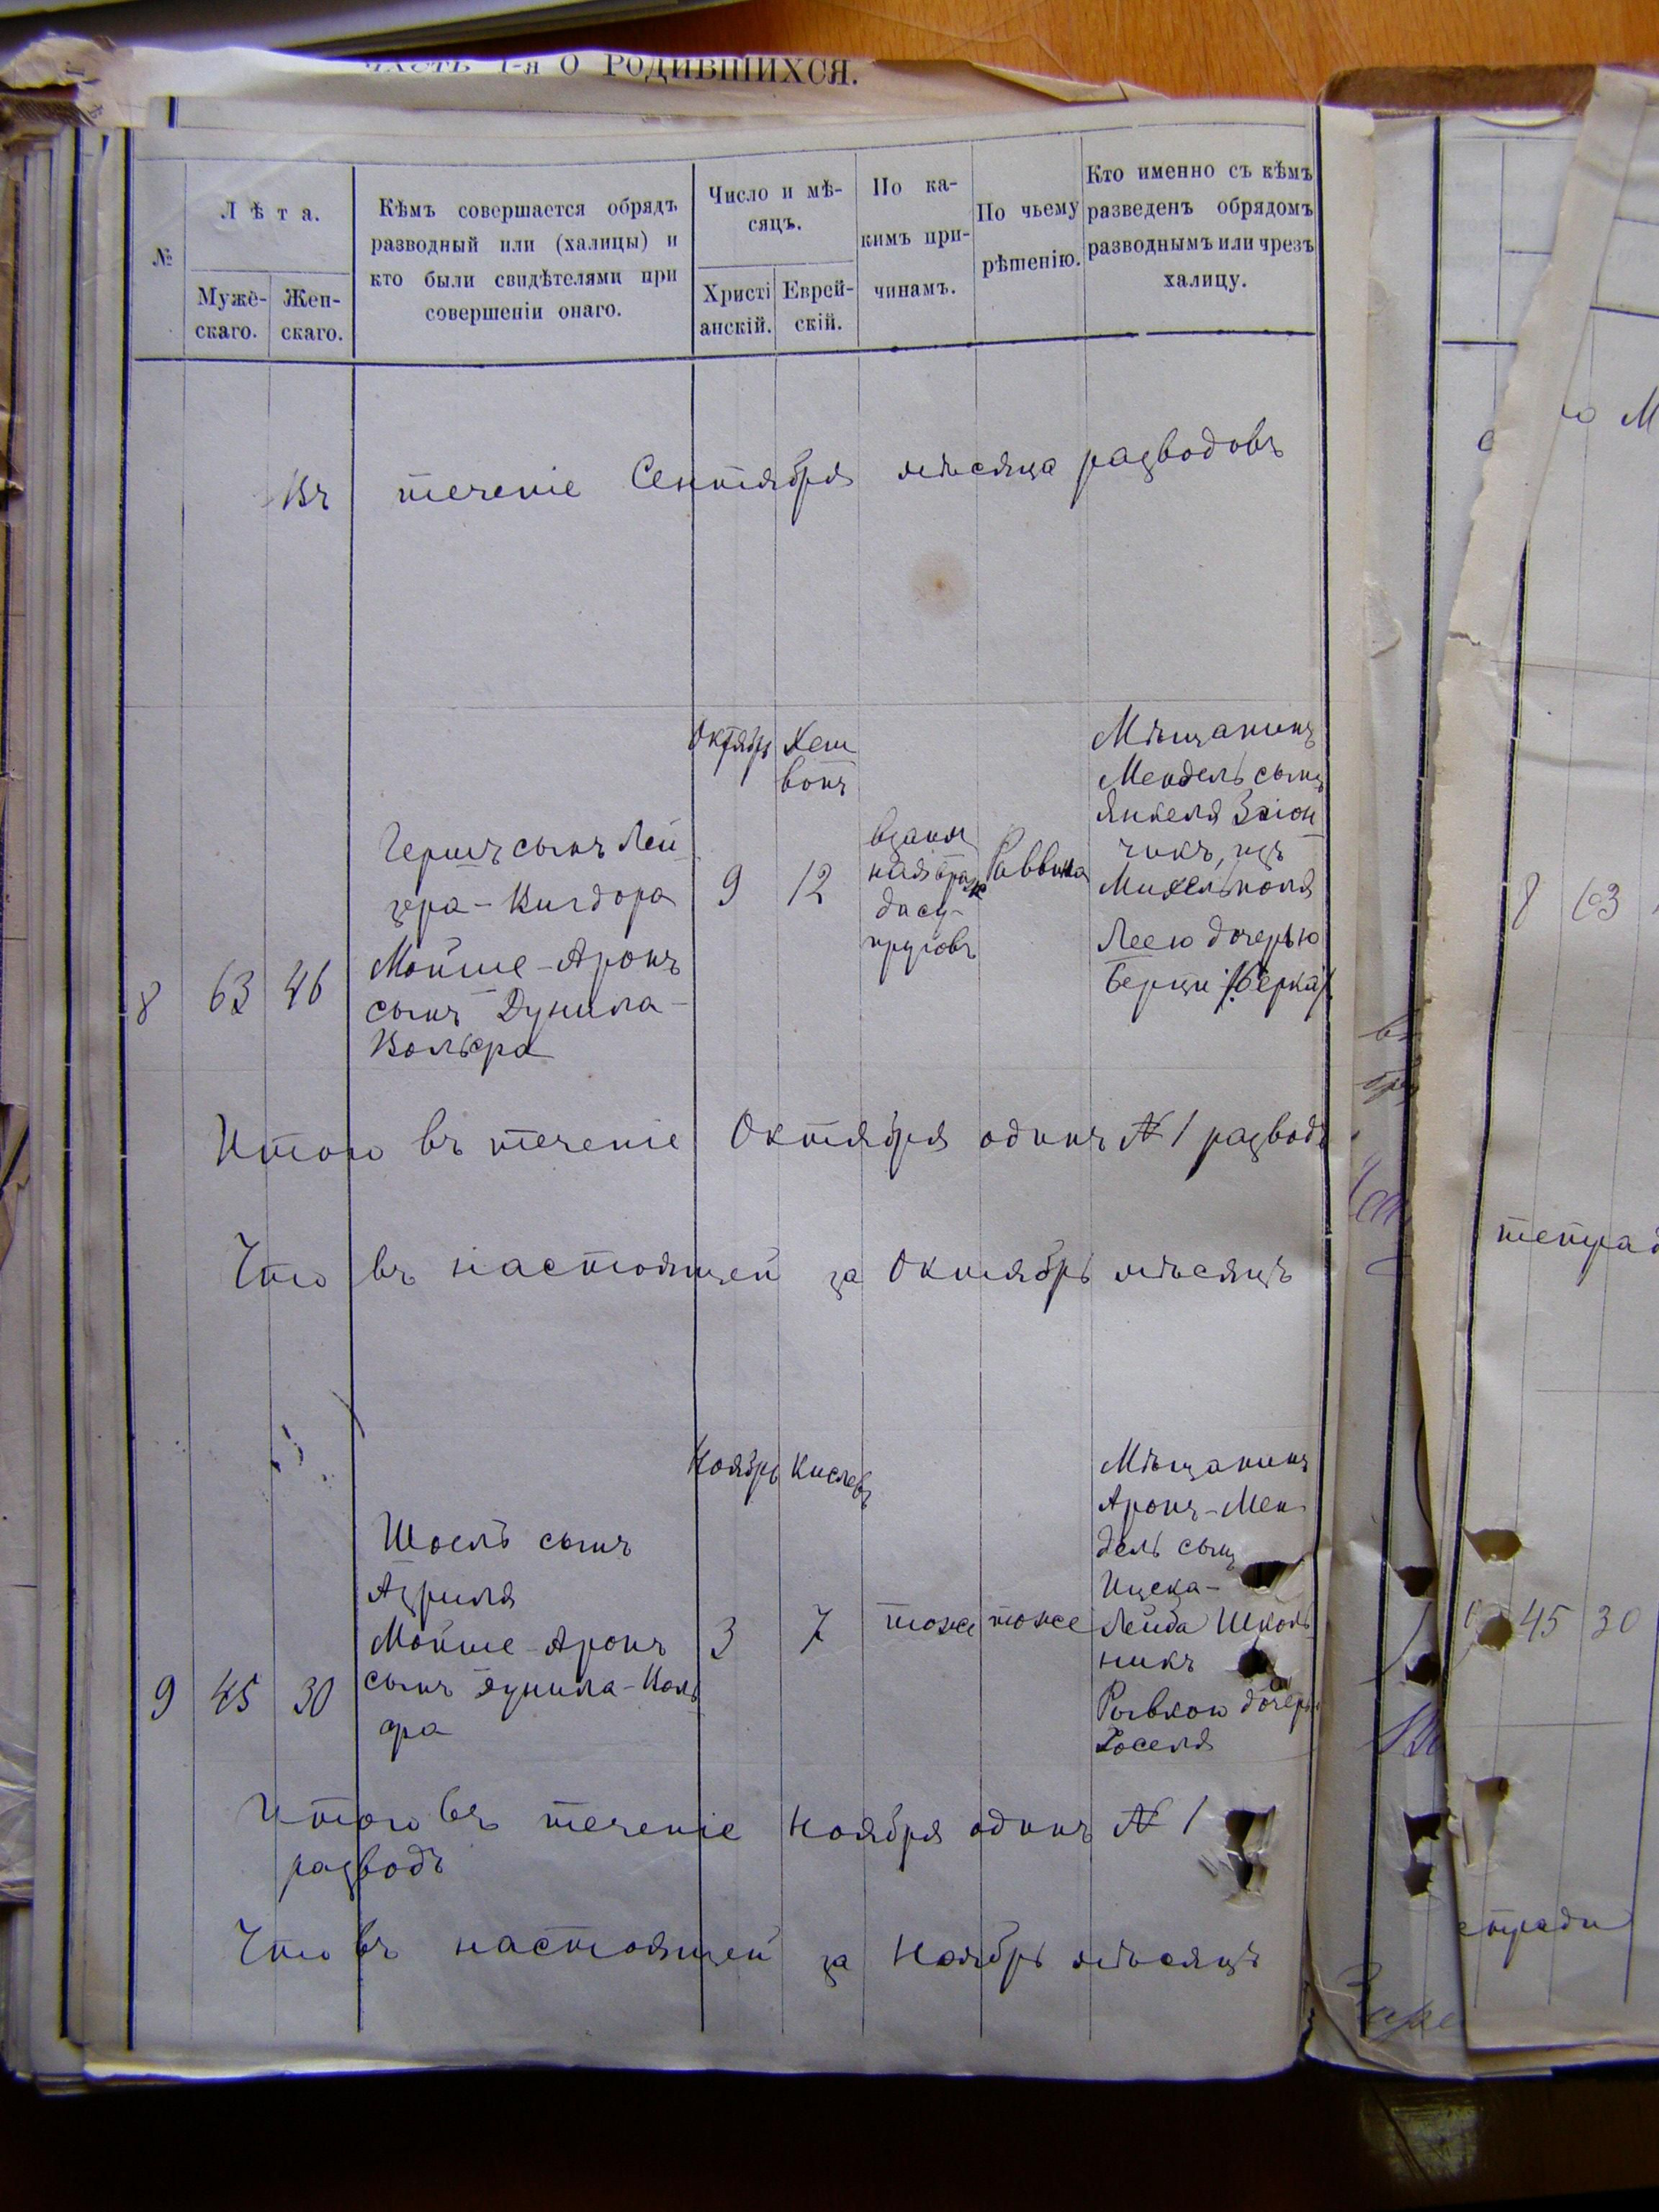 ЧАСТЬ I-я О РОДИВШИХСЯ.
№
Лѣта.
Муже-
скаго.
Жен-
скаго.
Кѣмъ совершается обрядъ
разводный или (халицы) и
кто были свидѣтелями при
совершеніи онаго.
Число и мѣ-
сяцъ.
Христі
анскій.
Еврей-
скій.
По ка-
кимъ при-
чинамъ.
По чьему
рѣшенію.
Кто именно съ кѣмъ
разведенъ обрядомъ
разводнымъ или чрезъ
халицу.
Въ теченіе Сентября мѣсяца разводовъ
8
63
46
Гершъ сынъ Лей
зера-Вигдора
Мойше-Аронъ
сынъ Дунила-
Вольфа
Октябрь
9
Хеш
вонъ
12
взаим
ная
пруговъ
Раввина
Мѣщанинъ
Мендель сынъ
Янкеля
чикъ, изъ
Михельполя
Леею дочерью
Берци /Берка/
Итого въ теченіе Октября одинъ № 1 разводъ
Что въ настоящей за Октябрь мѣсяцъ
9
45
30
Шоель сынъ
Азриля
Мойше-Аронъ
сынъ Дунила-Воль
фа
Ноябрь
3
Кислевъ
7
тоже
тоже
Мѣщанинъ
Аронъ-Мен
дель сынъ
Ицска-
Лейба Школь
никъ
Ривкою дочерью
Іоселя
Итого въ теченіе Ноября одинъ № 1
разводъ
Что въ настоящей за Ноябрь мѣсяцъ
8 63
тетрад
45 30